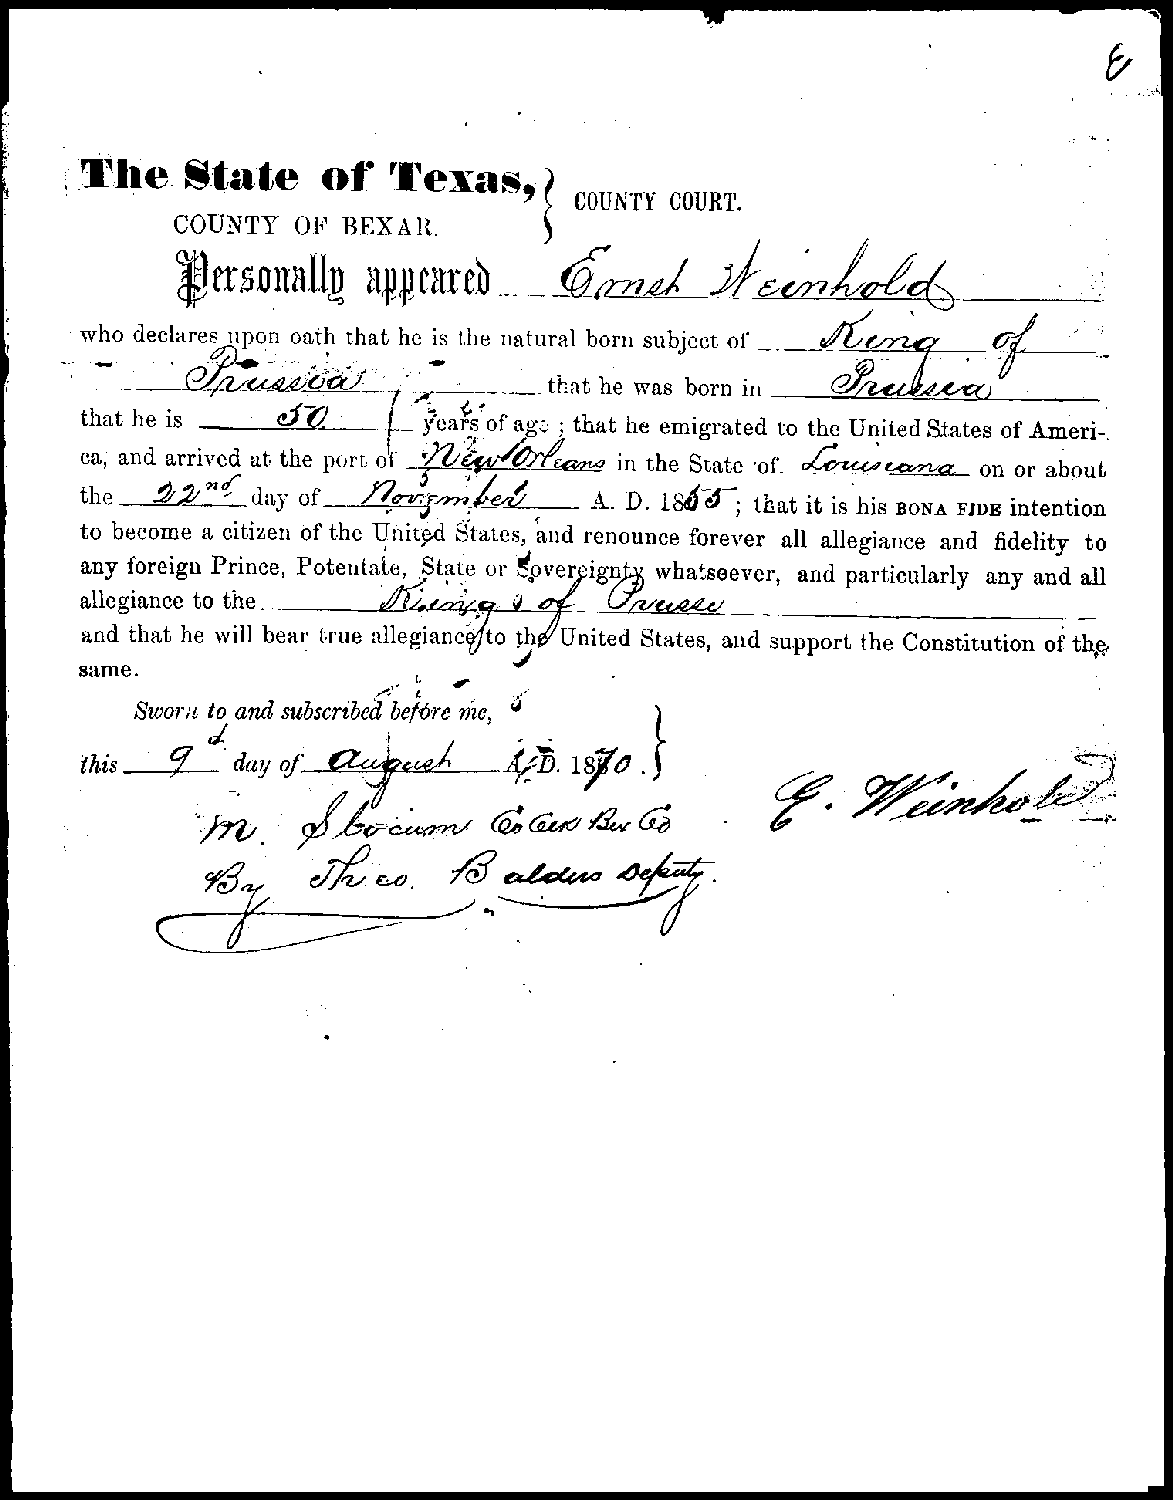 E
The State of Texas, } COUNTY COURT.
COUNTY OF BEXAR.
Personally appeared Ernst Weinhold
who declares upon oath that he is the natural born subject of King of
Prussia that he was born in Prussia
that he is 50 years of age ; that he emigrated to the United States of Ameri-
ca, and arrived at the port of New Orleans in the State of Louisiana on or about
the 22nd day of November A. D. 1855 ; that it is his BONA FIDE intention
to become a citizen of the United States, and renounce forever all allegiance and fidelity to
any foreign Prince, Potentate, State or Sovereignty whatsoever, and particularly any and all
allegiance to the King of Prusse
and that he will bear true allegiance to the United States, and support the Constitution of the
same.
Sworn to and subscribed before me,
this 9d day of August A. D. 1870. }
E. Weinhold
M. Slocum Co Clk Bex Co
By Theo. Balders Deputy.